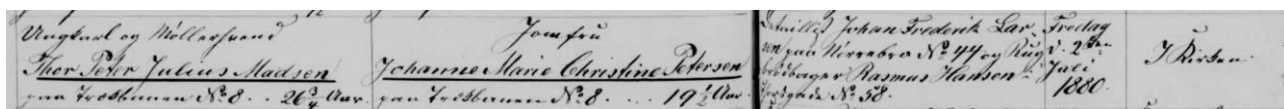 Ungkarl og Möllersvend
Thor Peter Julius Madsen
paa Trekbanen No 8. 26 3/4 Aar.
Jomfru
Johanne Marie Christine Petersen
paa Trekbanen No 8. ... 19 1/2 Aar.
Detaillist Johan Frederik Lar-
sen paa Nörrebro No 44 og Rug-
brödbager Rasmus Hansen
No 58.
Fredag
d. 2den
Juli
1880.
I Kirken